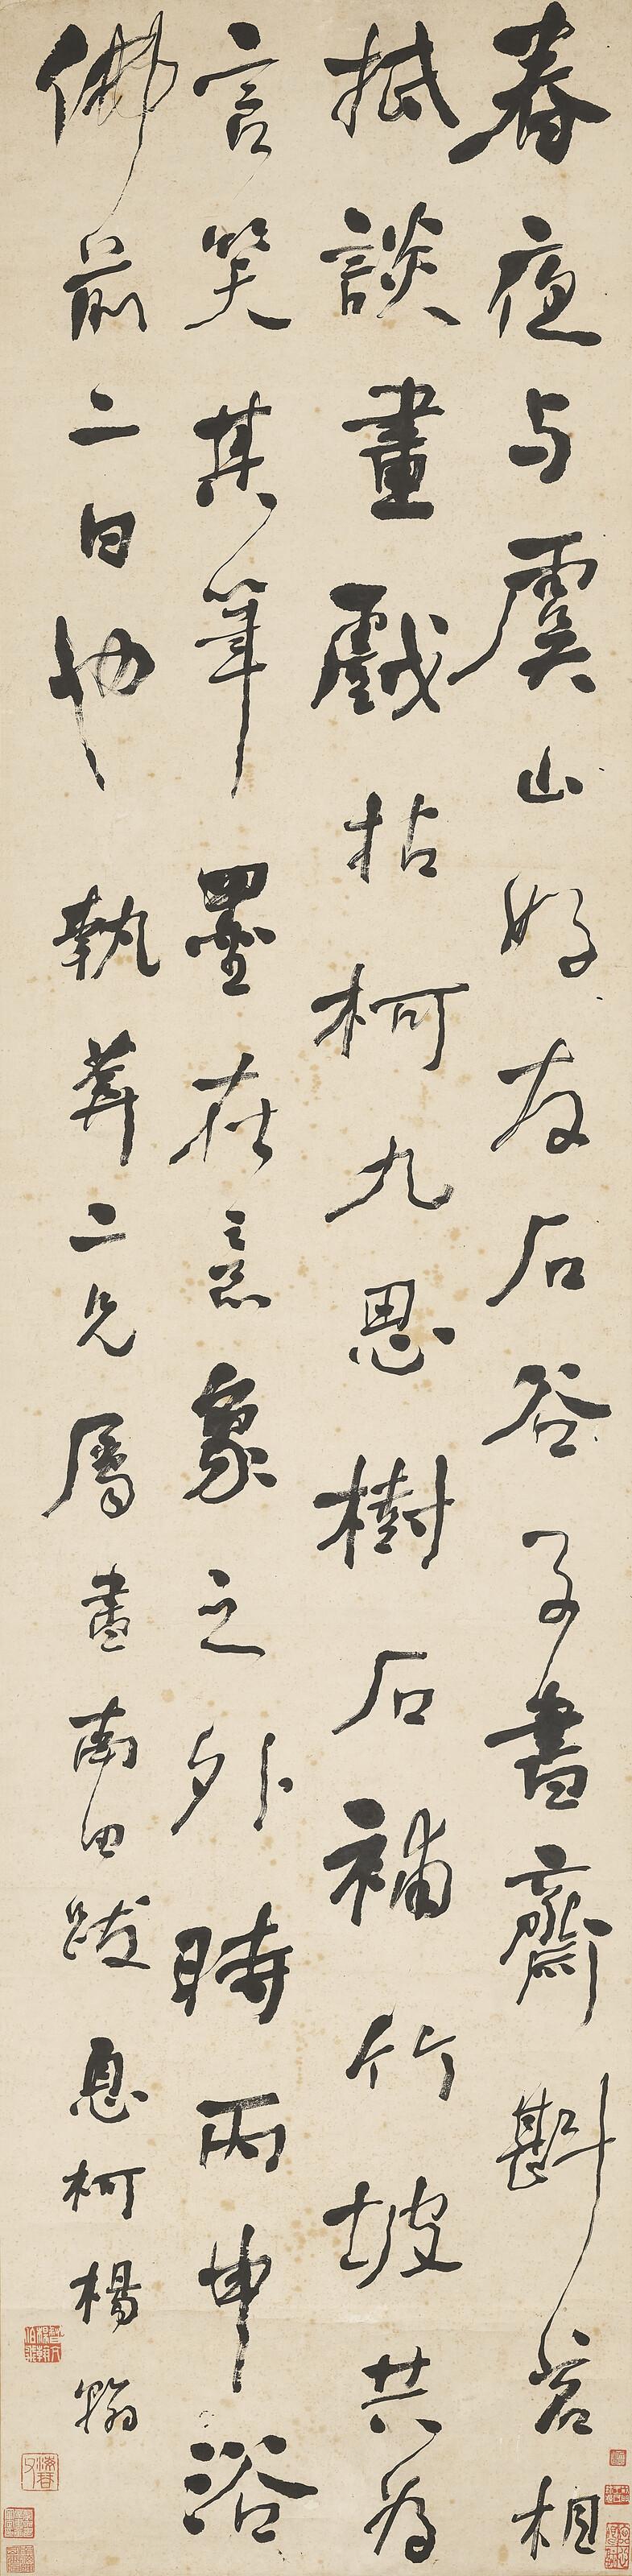 春夜与虞山好友石谷子書齋斟茗相
抵談畫戲拈柯九思樹石補竹坡共爲
言笑其筆墨在意象之外時丙申浴
佛前二日也 執葊二兄屬書南田跋 息柯楊翰